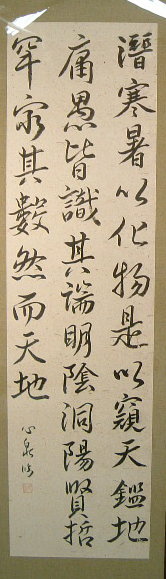 潛寒暑以化物是以窺天鑑地
庸愚皆識其端明陰洞陽賢哲
罕窮其數然而天地
心